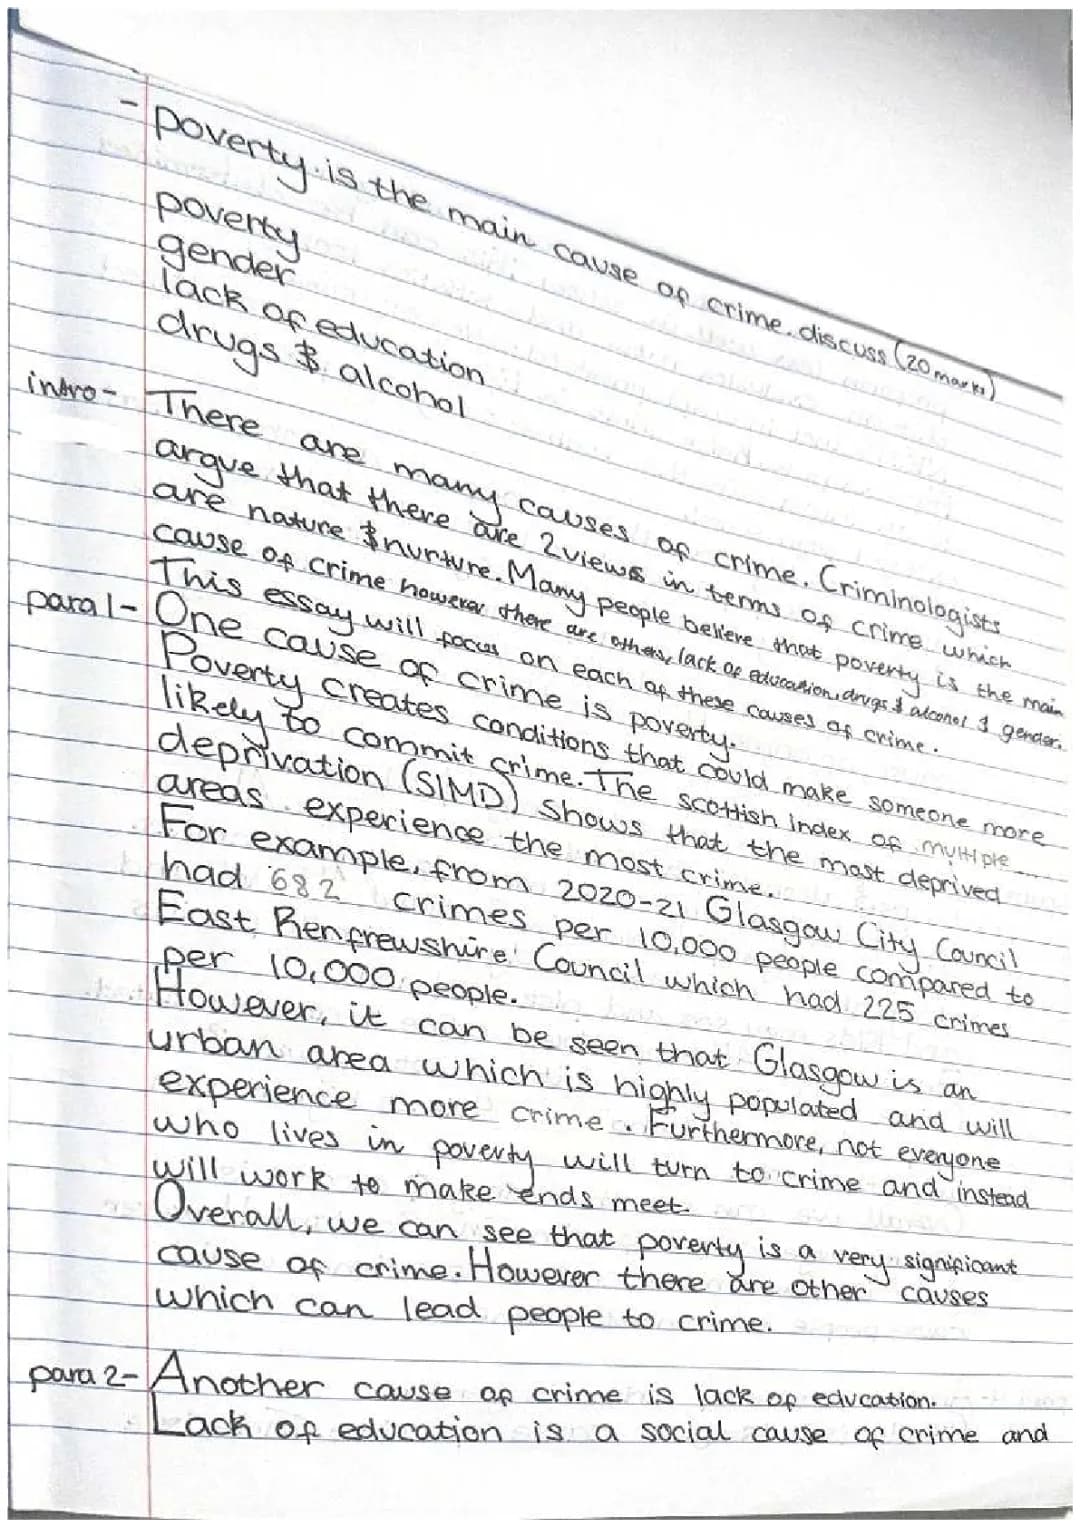 - poverty is the main cause of crime. discuss (20 marks)
poverty
gender
lack of education
drugs & alcohol
intro- There are many causes of crime. Criminologists
argue that there are 2 views in terms of crime which
are nature & nurture. Many people believe that poverty is the main
cause of crime however there are others, lack of education, drugs & alcohol & gender.
This essay will focus on each of these causes of crime.
para 1- One cause of crime is poverty.
Poverty creates conditions that could make someone more
likely to commit crime. The scottish index of multiple
deprivation (SIMD) shows that the most deprived
areas experience the most crime.
For example, from 2020-21 Glasgow City Council
had 682 crimes per 10,000 people compared to
East Renfrewshire Council which had 225 crimes
per 10,000 people.
However, it can be seen that Glasgow is an
urban area which is highly populated and will
experience more crime. Furthermore, not everyone
who lives in poverty will turn to crime and instead
will work to make ends meet.
Overall, we can see that poverty is a very significant
cause of crime. However there are other causes
which can lead people to crime.
para 2- Another cause of crime is lack of education.
Lack of education is a social cause of crime and